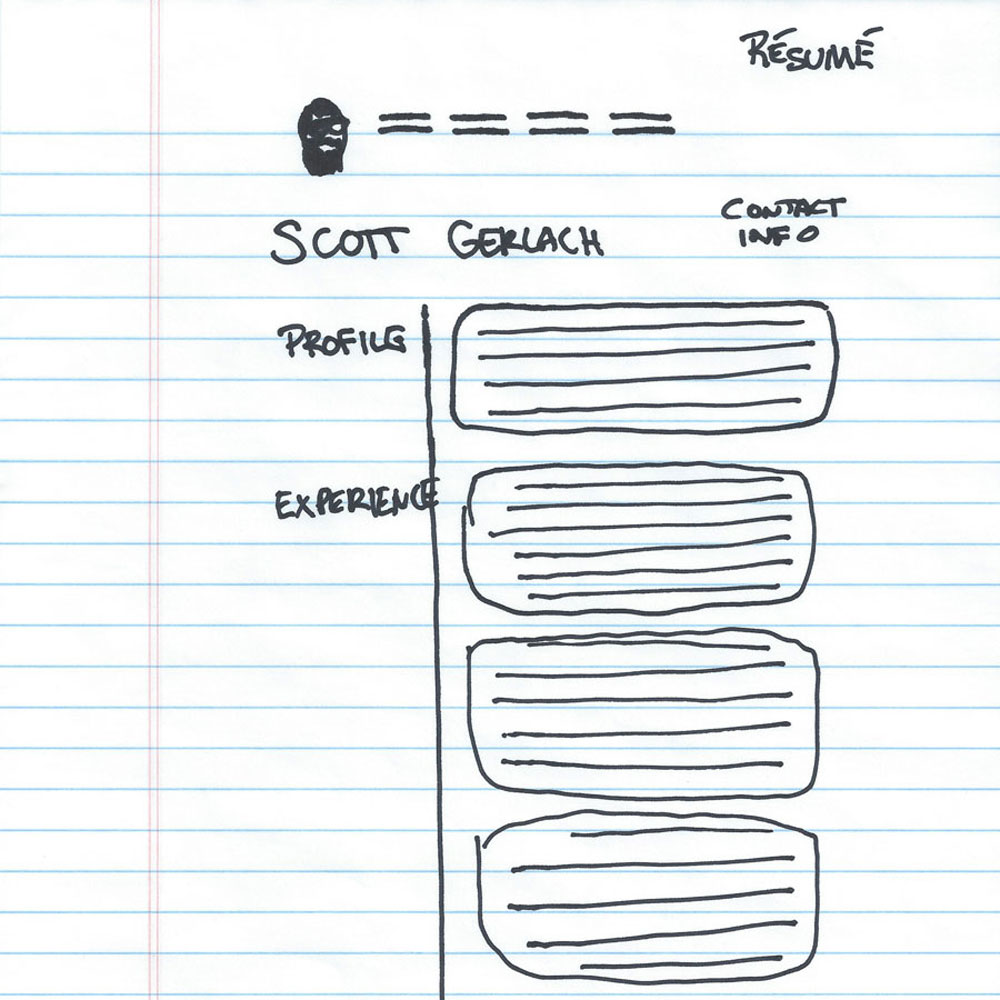 RÉSUMÉ
SCOTT GERLACH
CONTACT
INFO
PROFILE
EXPERIENCE